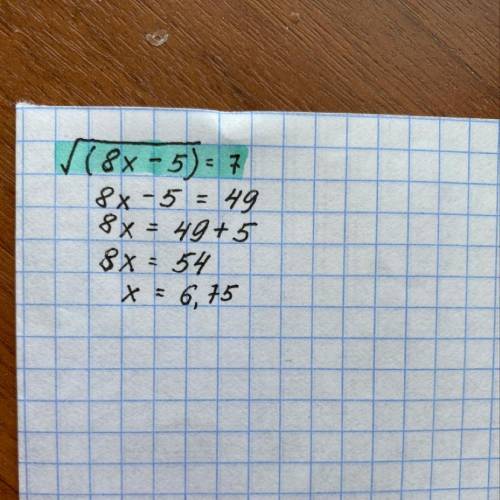 √(8x - 5) = 7
8x - 5 = 49
8x = 49 + 5
8x = 54
x = 6,75